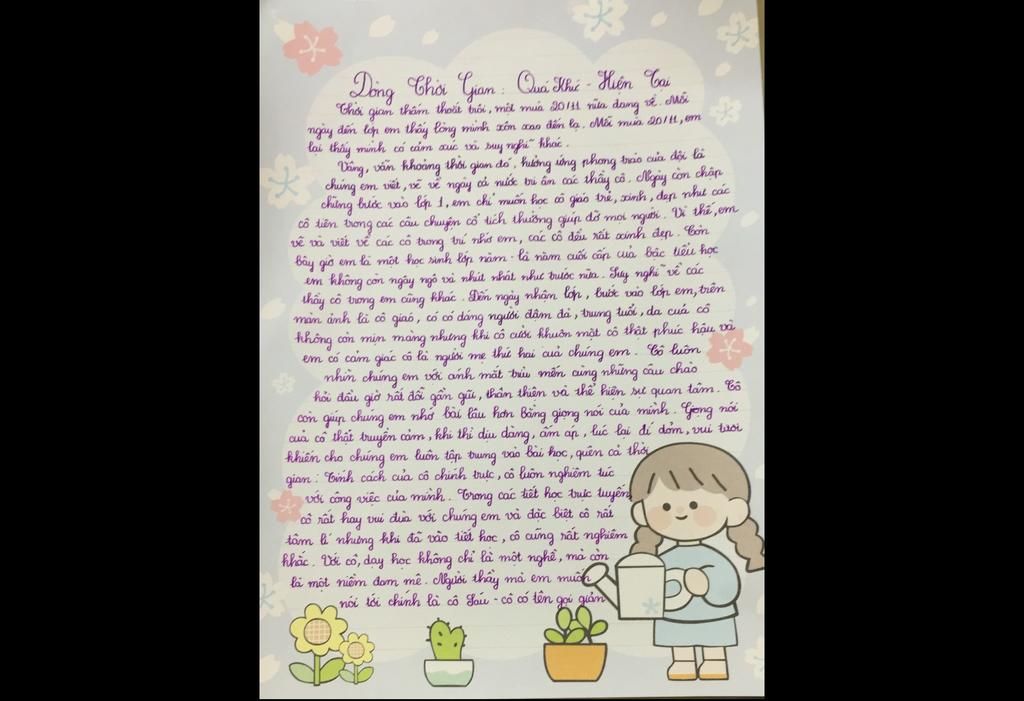 Dòng Thời Gian: Quá Khứ - Hiện Tại
Thời gian thấm thoắt trôi, một mùa 20/11 nữa đang về. Mỗi
ngày đến lớp em thấy lòng mình xôn xao đến lạ. Mỗi mùa 20/11, em
lại thấy mình có cảm xúc và suy nghĩ khác.
Vâng, vẫn khoảng thời gian đó, hưởng ứng phong trào của đội là
chúng em viết, vẽ về ngày cả nước tri ân các thầy cô. Ngày còn chập
chững bước vào lớp 1, em chỉ muốn học cô giáo trẻ, xinh, đẹp như các
cô tiên trong các câu chuyện cổ tích thường giúp đỡ mọi người. Vì thế, em
vẽ và viết về các cô trong trí nhớ em, các cô đều rất xinh đẹp. Còn
bây giờ em là một học sinh lớp năm - là năm cuối cấp của bậc tiểu học
em không còn ngây ngô và nhút nhát như trước nữa. Suy nghĩ về các
thầy cô trong em cũng khác. Đến ngày nhận lớp, bước vào lớp em, trên
màn ảnh là cô giáo, cô có dáng người đậm đà, trung tuổi, da cuả cô
không còn mịn màng nhưng khi cô cười khuôn mặt cô thật phúc hậu và
em có cảm giác cô là người mẹ thứ hai cuả chúng em. Cô luôn
nhìn chúng em với ánh mắt trìu mến cùng những câu chào
hỏi đầu giờ rất đỗi gần gũi, thân thiện và thể hiện sự quan tâm. Cô
còn giúp chúng em nhớ bài lâu hơn bằng giọng nói của mình. Giọng nói
cuả cô thật truyền cảm, khi thì dịu dàng, ấm áp, lúc lại dí dỏm, vui tươi
khiến cho chúng em luôn tập trung vào bài học, quên cả thời
gian. Tính cách của cô chính trực, cô luôn nghiêm túc
với công việc của mình. Trong các tiết học trực tuyến,
cô rất hay vui đùa với chúng em và đặc biệt cô rất
tâm lí nhưng khi đã vào tiết học, cô cũng rất nghiêm
khắc. Với cô, dạy học không chỉ là một nghề, mà còn
là một niềm đam mê. Người thầy mà em muốn
nói tới chính là cô Sáu - cô có tên gọi giản